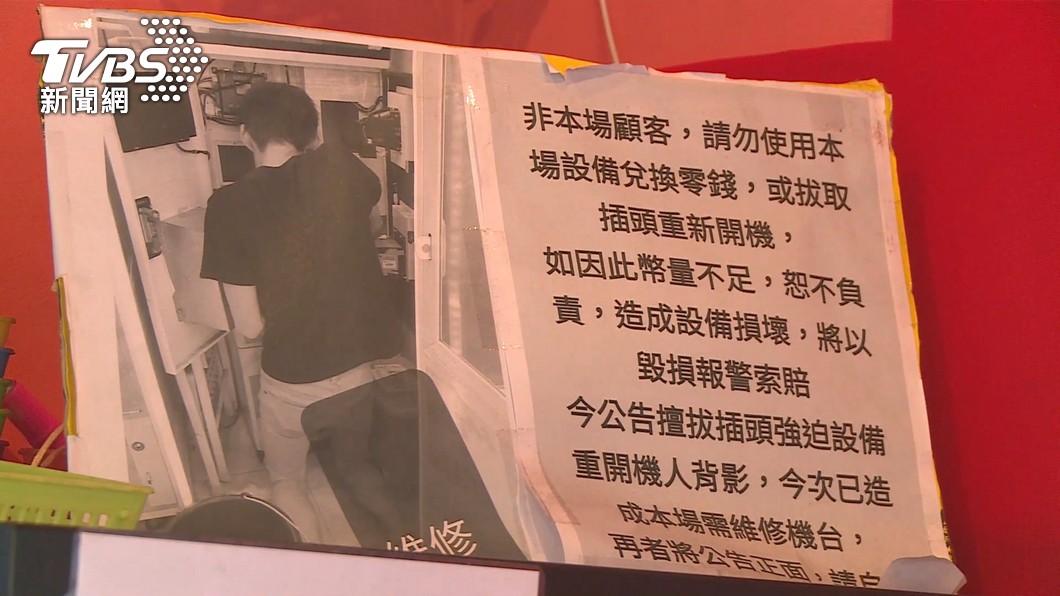 TVBS
新聞網
非本場顧客，請勿使用本
場設備兌換零錢，或拔取
插頭重新開機，
如因此幣量不足，恕不負
責，造成設備損壞，將以
毀損報警索賠
今公告擅拔插頭強迫設備
重開機人背影，今次已造
成本場需維修機台，
再者將公告正面，請自
維修